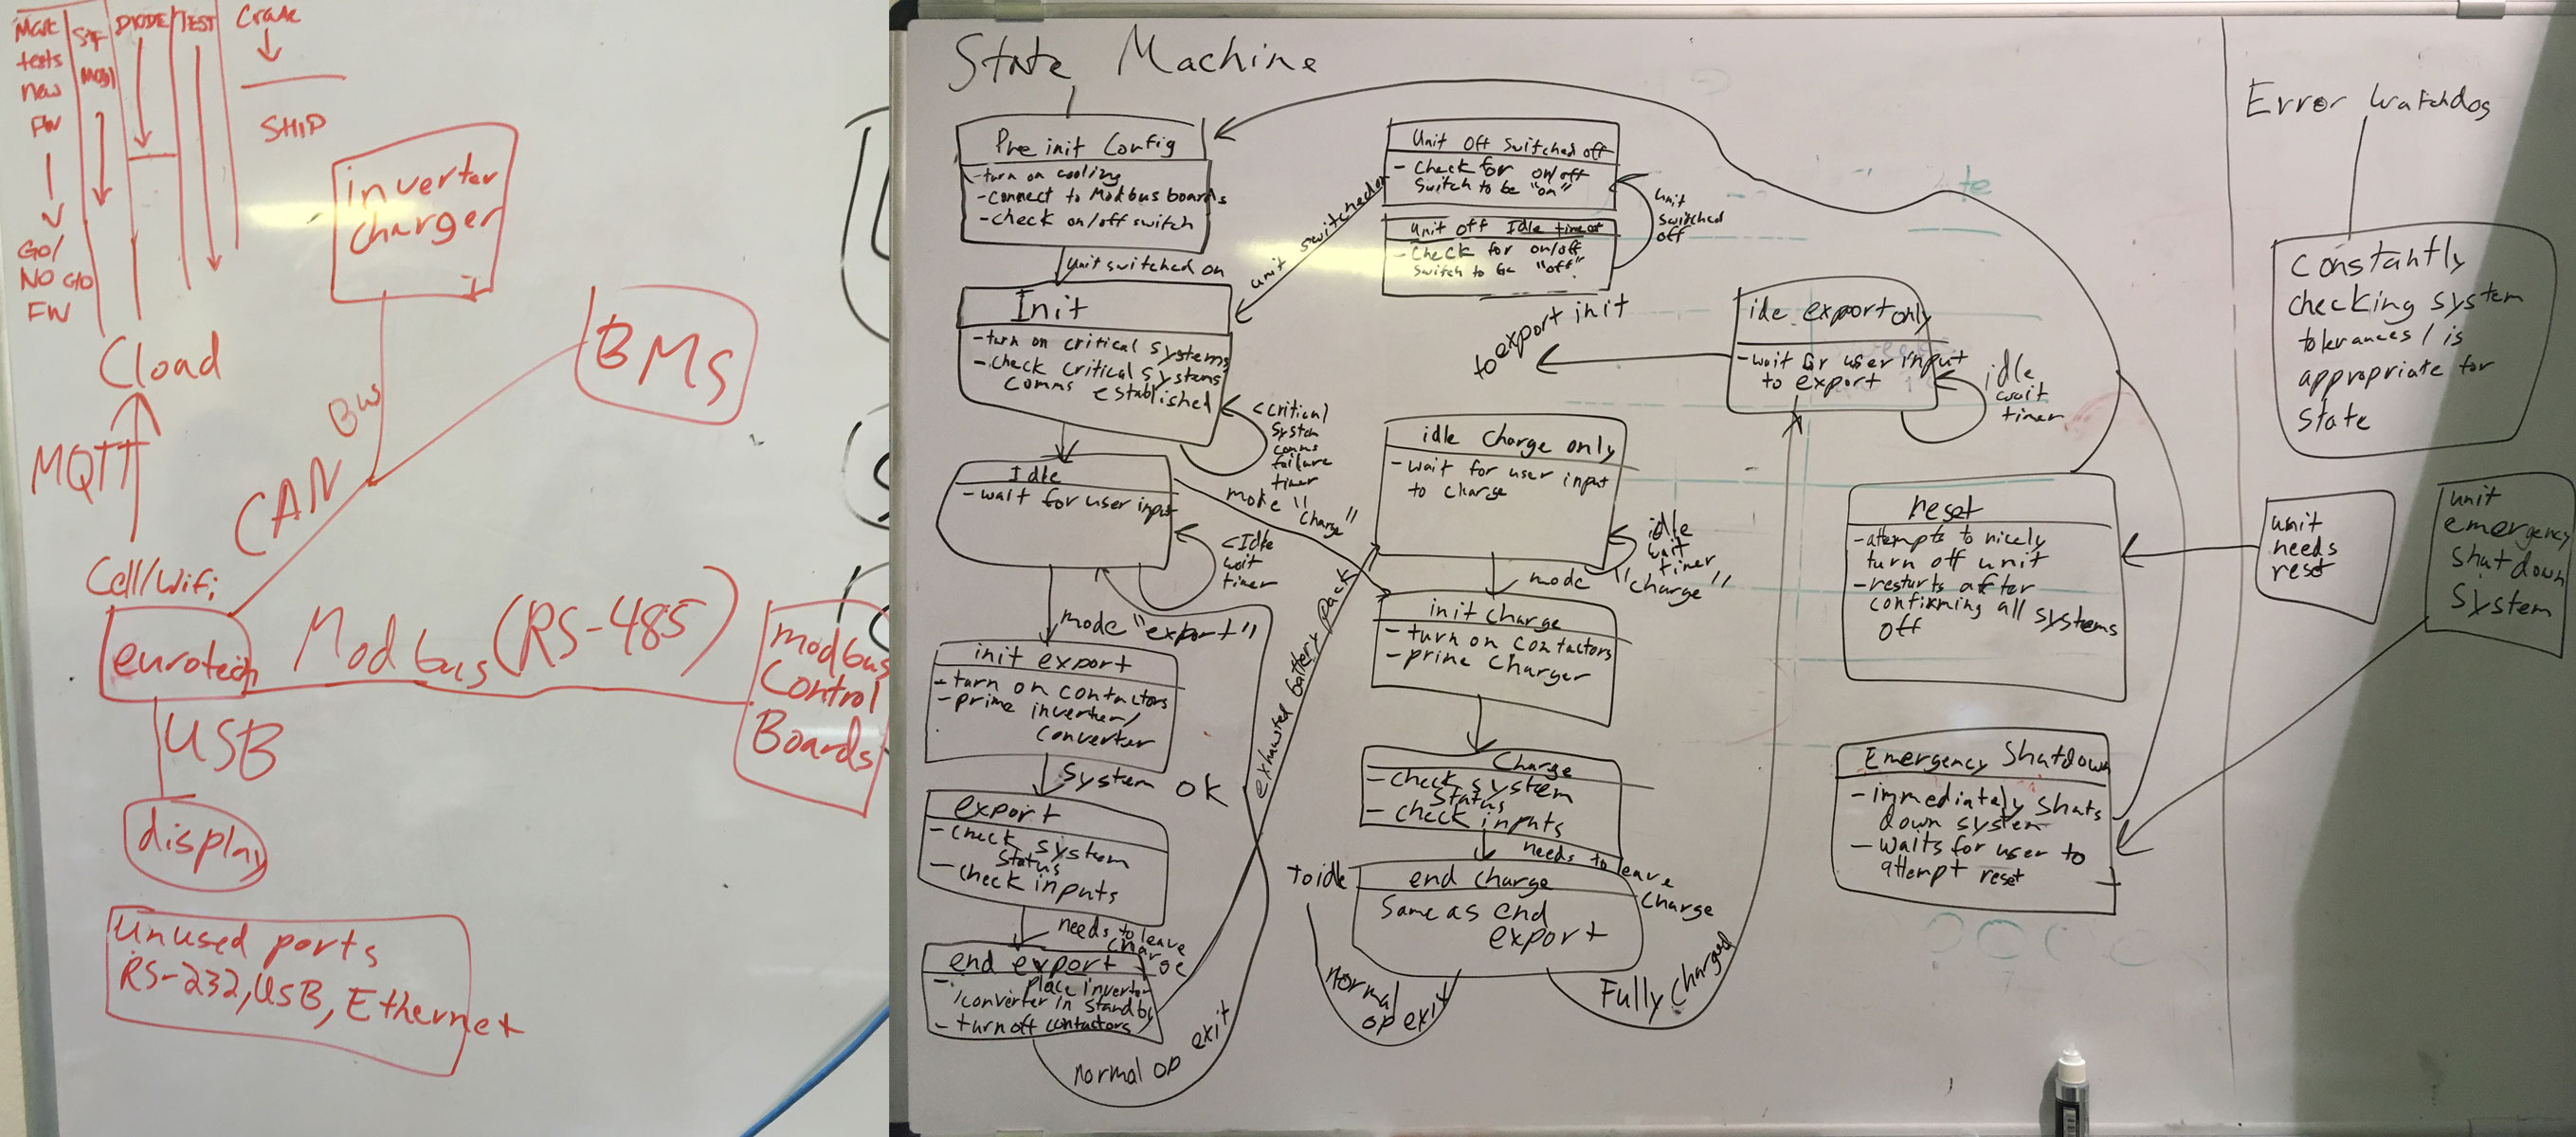 Mark
tests
new
FW
GO/
NO GO
FW
TEST
Crane
SHIP
inverter
charger
BMS
Cload
MQTT
CAN
Bus
Cell/Wifi
eurotech
Modbus (RS-485)
modbus
Control
Boards
USB
display
Unused ports
RS-232, USB, Ethernet
State Machine
Pre init Config
-turn on cooling
-connect to Modbus boards
-check on/off switch
Unit switched on
Init
-turn on critical systems
-check critical systems
comms established
<critical
system
comms
failure
timer
Idle
-wait for user input
<Idle
wait
timer
mode "charge"
mode "export"
init export
-turn on contactors
-prime inverter/
converter
System OK
export
-check system
status
-check inputs
needs to leave
charge
end export
- place inverter
/converter in standby
-turn off contactors
normal op exit
exhausted battery pack
Unit Off Switched off
-Check for on/off
Switch to be "on"
unit switched on
Unit off Idle timeout
-Check for on/off
Switch to be "off"
unit
switched
off
to export init
idle export only
-wait for user input
to export
idle
wait
timer
idle charge only
-wait for user input
to charge
idle
wait
timer
mode "charge"
init charge
-turn on contactors
-prime charger
Charge
-check system
status
-check inputs
needs to leave
charge
to idle
end charge
Same as end
export
normal
op exit
Fully Charged
reset
-attempts to nicely
turn off unit
-restarts after
confirming all systems
off
Emergency Shutdown
-immediately shuts
down system
-waits for user to
attempt reset
Error Watchdog
Constantly
checking system
tolerances / is
appropriate for
state
unit
needs
reset
unit
emergency
shutdown
system